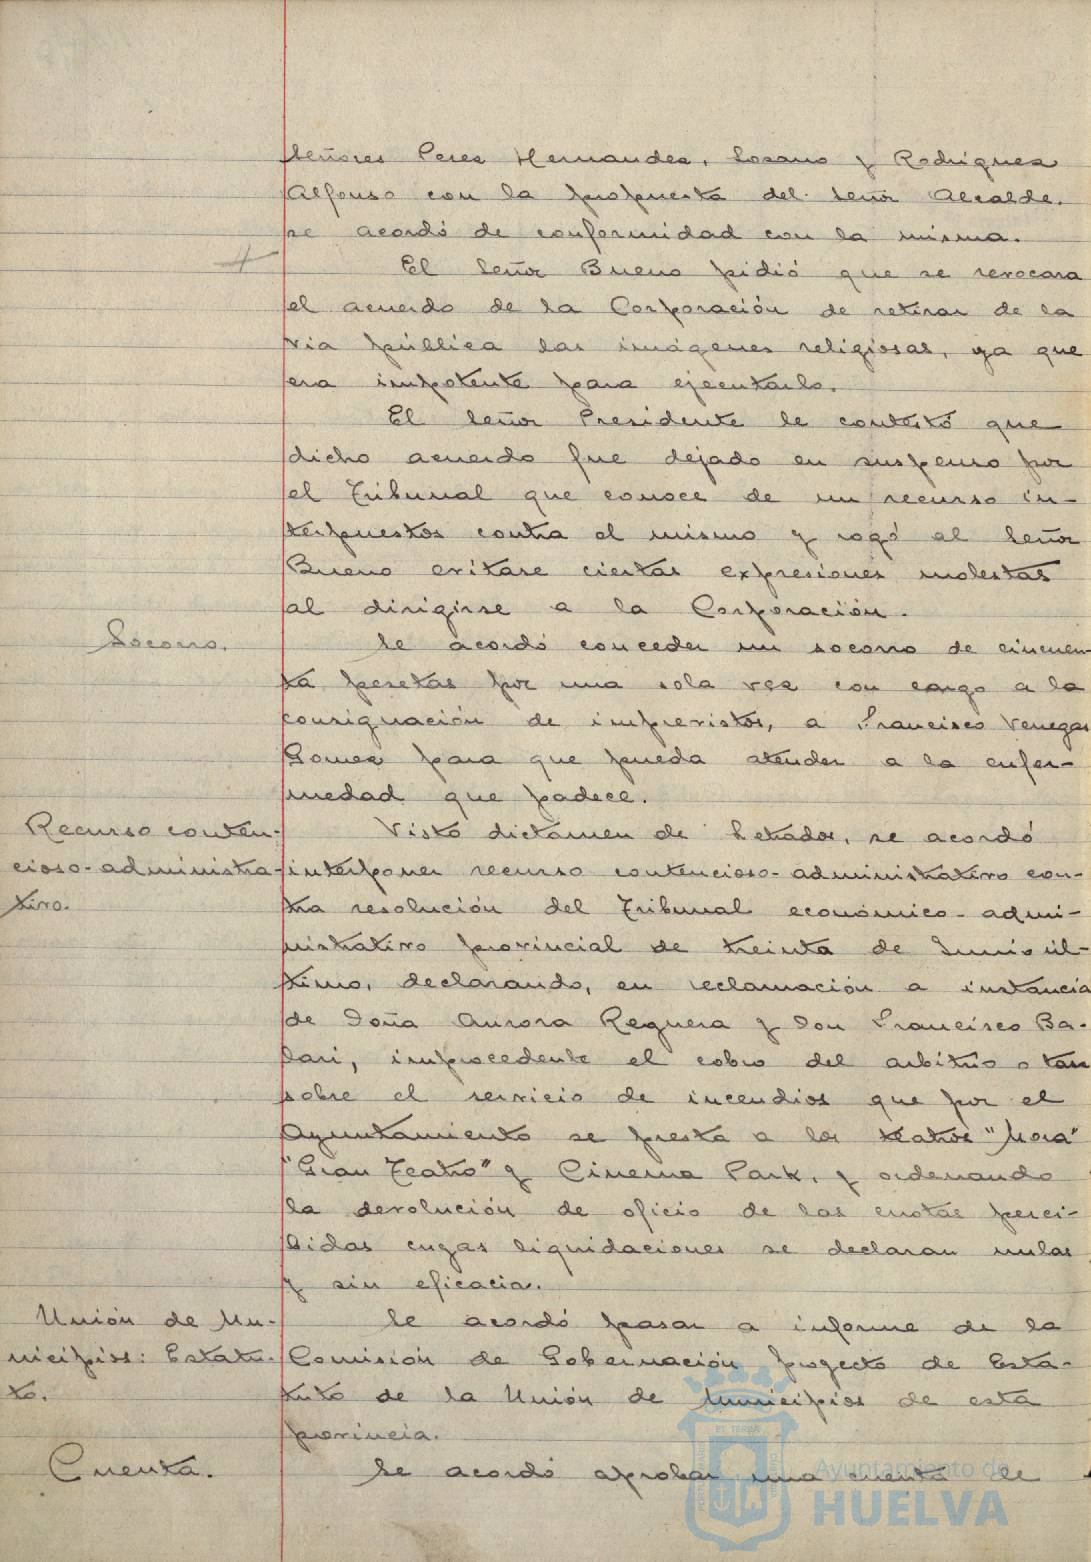 Señores Perez Hernandez, Lozano y Rodriguez
Alfonso con la propuesta del Señor Alcalde,
se acordó de conformidad con la misma.
El Señor Bueno pidió que se revocara
el acuerdo de la Corporación de retirar de la
via pública las imágenes religiosas, ya que
era impotente para ejecutarlo.
El Señor Presidente le contestó que
dicho acuerdo fue dejado en suspenso por
el Tribunal que conoce de un recurso in-
terpuestos contra el mismo y rogó al Señor
Bueno evitase ciertas expresiones molestas
al dirigirse a la Corporación.
Socorro.
Se acordó conceder un socorro de cincuen-
ta pesetas por una sola vez con cargo a la
consignación de imprevistos, a Francisco Venegas
Gomez para que pueda atender a la enfer-
medad que padece.
Recurso conten-
cioso-administra-
tivo.
Visto dictamen de Letrados, se acordó
interponer recurso contencioso-administrativo con-
tra resolución del Tribunal económico-admi-
nistrativo provincial de treinta de Junio úl-
timo, declarando, en reclamación a instancia
de Doña Aurora Reguera y Don Francisco Ba-
lari, improcedente el cobro del arbitrio o tasa
sobre el servicio de incendios que por el
Ayuntamiento se presta a los teatros "Mora"
"Gran Teatro" y Cinema Park, y ordenando
la devolución de oficio de las cuotas perci-
bidas cuyas liquidaciones se declaran nulas
y sin eficacia.
Unión de Mu-
nicipios: Estatu-
to.
Se acordó pasar a informe de la
Comisión de Gobernación proyecto de Esta-
tuto de la Unión de Municipios de esta
provincia.
Cuenta.
Se acordó aprobar una cuenta de
Ayuntamiento de
HUELVA